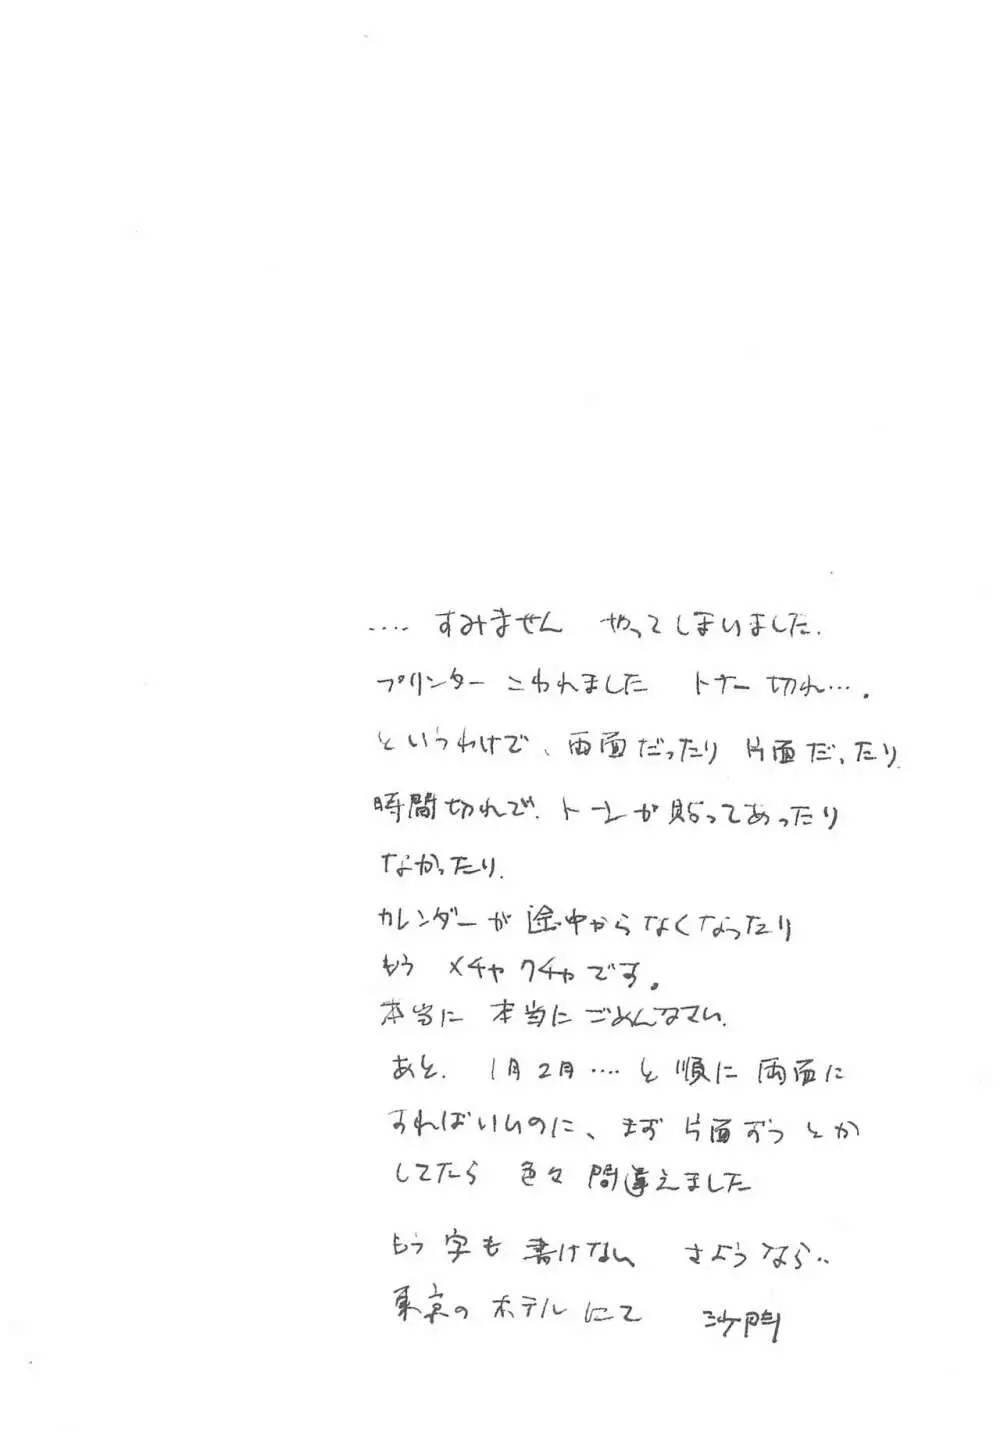 ‥‥ すみません やってしまいました.
プリンターこわれました トナー切れ….
というわけで、両面だったり片面だったり.
時間切れで.トーンが貼ってあったり
なかったり.
カレンダーが途中からなくなったり
もう メチャクチャです。
本当に 本当にごめんなさい.
あと. 1月2月‥‥と順に両面に
すればいいのに、まず片面ずつとか
してたら 色々間違えました
もう字も書けない さようなら‥
東京のホテルにて